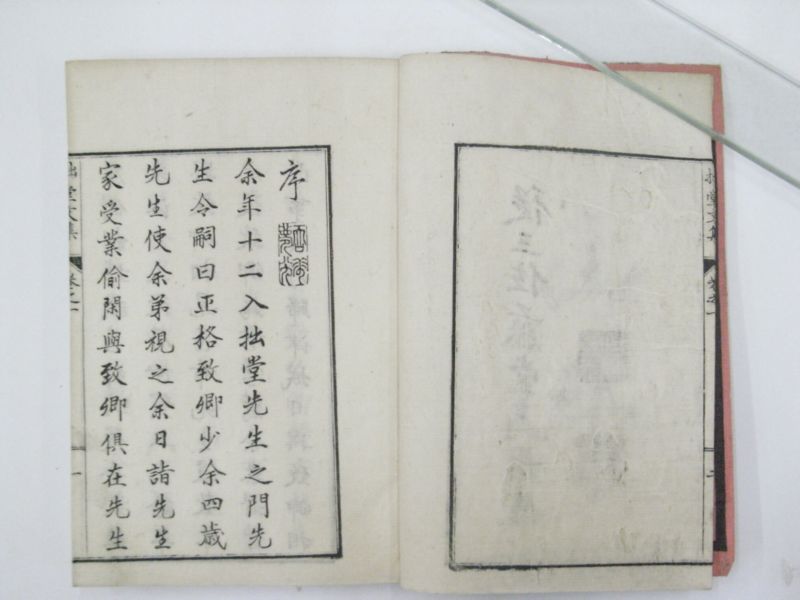 序
余年十二入拙堂先生之門先
生令嗣曰正格致卿少余四歳
先生使余弟視之余日詣先生
家受業偷閑與致卿俱在先生
拙堂文集
卷之一
一
拙堂文集
卷之一